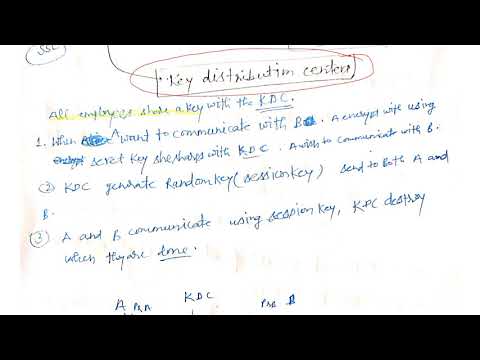 SSL
Key distribution center
All employees share a key with the KDC.
1. When A want to communicate with B. A encrypt wife using
secret key she shares with KDC. A wish to communicate with B.
(2) KDC generate Random key (session key) send to Both A and
B.
(3) A and B communicate using session key, KDC destroy
when they are done.
A KDC B